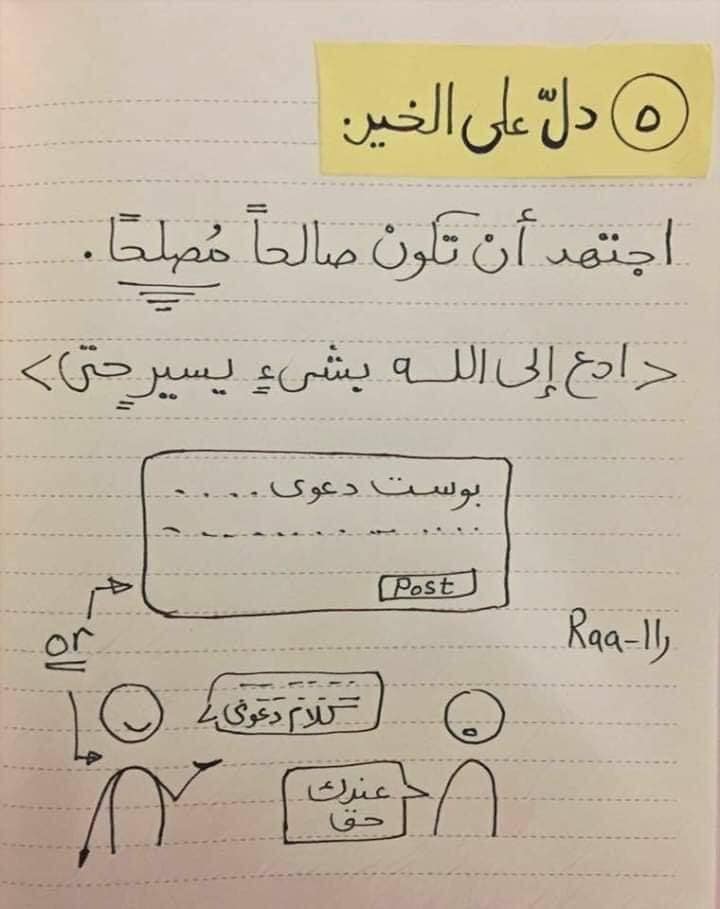 ٥ دلّ على الخير.
اجتهد أنْ تكونْ صالحاً مُصلحًا.
< ادع إلى الله بشيءٍ يسيرٍ حتى >
بوست دعوى . . . .
Post
or
Raa-11را
كلام دعوى
عندك
حق